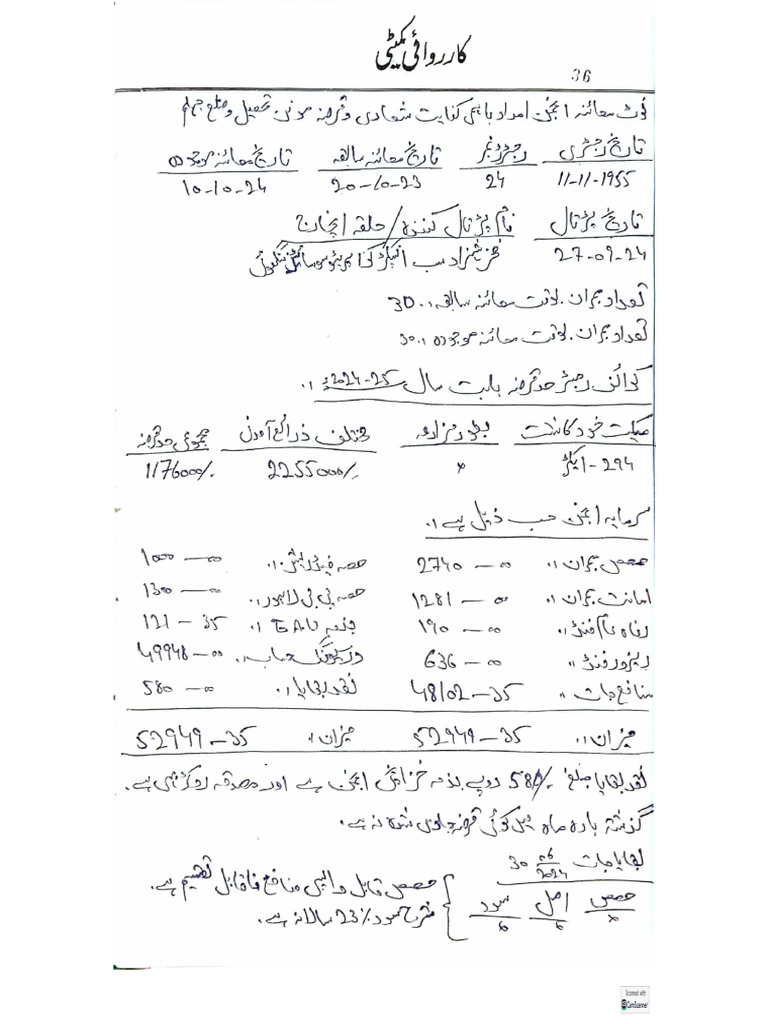 کارروائی کمیٹی
36
نوٹ معائنہ انجمن امداد باہمی کفایت شعاری و قرضہ تحصیل و ضلع جہلم
تاریخ رجسٹری رجسٹر نمبر تاریخ معائنہ سابقہ تاریخ معائنہ موجودہ
11-11-1955 24 20-10-23 10-10-24
تاریخ پڑتال نام پڑتال کنندہ / حلقہ
27-09-24 سب انسپکٹر کوآپریٹو سوسائٹیز
تعداد ممبران بوقت معائنہ سابقہ :. 30
تعداد ممبران بوقت معائنہ موجودہ :. 30
کوائف رجسٹر حد قرضہ بابت سال 25-2024ء :.
ملکیت خود کاشت بطور مزارعہ مختلف ذرائع آمدن مجموعی حد قرضہ
294-ایکڑ × 2255000/- 1176000/-
سرمایہ انجمن حسب ذیل ہے :.
حصص ممبران :. 2740 — 00 حصہ فیڈریشن :. 1000 — 00
امانت ممبران :. 1281 — 00 حصہ پی بی لاہور :. 1300 — 00
رفاہ عام فنڈ :. 190 — 00 121 — 35
ریزرو فنڈ " 636 — 00 49948 — 00
منافع جات " 48102 — 35 نقد بقایا :. 580 — 00
میزان :. 52949 — 35 میزان " 52949 — 35
نقد بقایا مبلغ 580/- روپے بذمہ خزانچی انجمن ہے اور مصدقہ روکڑ بہی ہے۔
گزشتہ بارہ ماہ میں کوئی قرضہ جاری شدہ نہ ہے۔
بقایاجات 30 06/2024
حصص اصل سود } حصص قابل واپسی منافع ناقابل تقسیم ہے۔
× × × شرح سود 23% سالانہ ہے۔
Scanned with
CamScanner